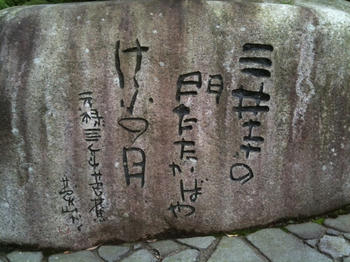 三井寺の
門たたかばや
けふの月
元禄三年芭蕉